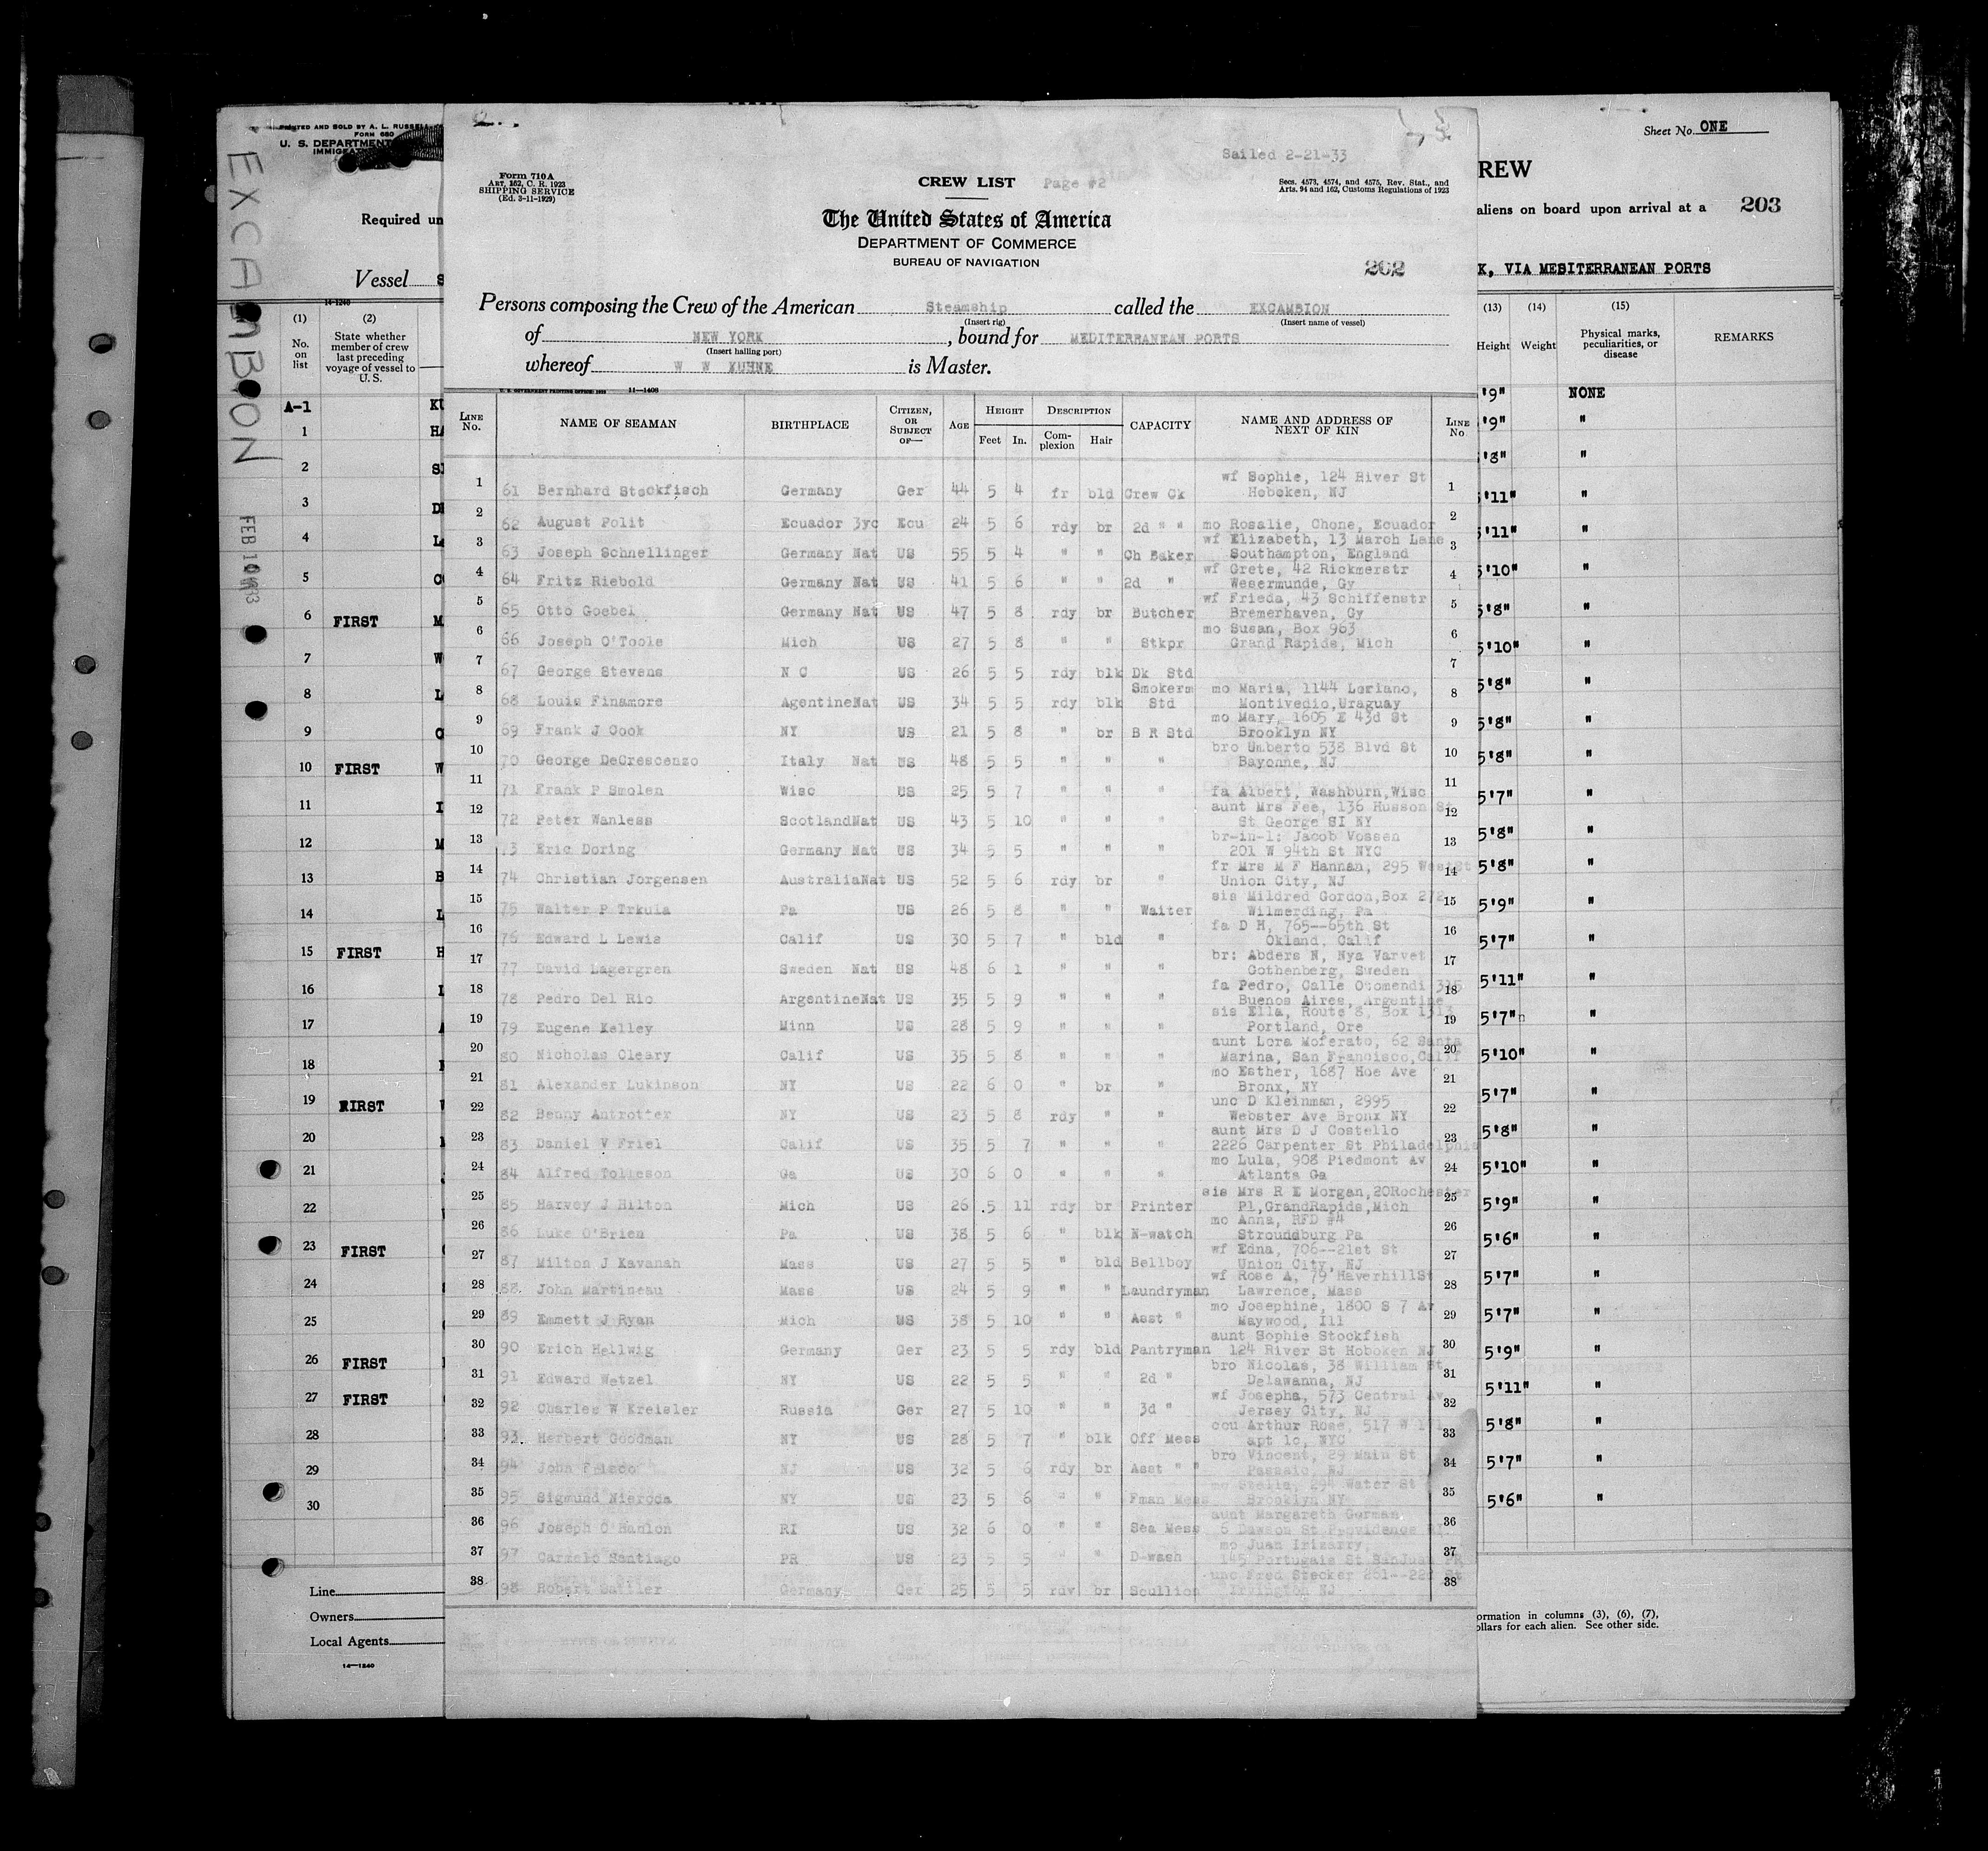 PRINTED AND SOLD BY A. L. RUSSELL
FORM 680
U. S. DEPARTMENT
IMMIGRAT
EXCAMBION
FEB 10 1933
Required un
Vessel S
14-1240
(1) (2)
No. on list
State whether member of crew last preceding voyage of vessel to U. S.
A-1 KU
1 HA
2 SI
3 DE
4 L
5 C
6 FIRST M
7 W
8 L
9 C
10 FIRST W
11 I
12 M
13 B
14 L
15 FIRST H
16 I
17
18
19 FIRST
20
21
22
23 FIRST
24
25
26 FIRST
27 FIRST
28
29
30
Line
Owners
Local Agents
14—1240
Sailed 2-21-33
Form 710A
ART. 162, C. R. 1923
SHIPPING SERVICE
(Ed. 3-11-1929)
CREW LIST Page #2
Secs. 4573, 4574, and 4575, Rev. Stat., and
Arts. 94 and 162, Customs Regulations of 1923
The United States of America
DEPARTMENT OF COMMERCE
BUREAU OF NAVIGATION
202
Persons composing the Crew of the American Steamship called the EXCAMBION
(Insert rig) (Insert name of vessel)
of NEW YORK, bound for MEDITERRANEAN PORTS
(Insert hailing port)
whereof W W KUHNE is Master.
U. S. GOVERNMENT PRINTING OFFICE: 1929 11—1406
LINE No. NAME OF SEAMAN BIRTHPLACE CITIZEN, OR SUBJECT OF— AGE HEIGHT Feet In. DESCRIPTION Complexion Hair CAPACITY NAME AND ADDRESS OF NEXT OF KIN LINE No
1 61 Bernhard Stockfisch Germany Ger 44 5 4 fr bld Crew Ck wf Sophie, 124 River St Hoboken, NJ 1
2 62 August Polit Ecuador 3yc Ecu 24 5 6 rdy br 2d " " mo Rosalie, Chone, Ecuador 2
3 63 Joseph Schnellinger Germany Nat US 55 5 4 " " Ch Baker wf Elizabeth, 13 March Lane Southampton, England 3
4 64 Fritz Riebold Germany Nat US 41 5 6 " " 2d " wf Grete, 42 Rickmerstr Wesermunde, Gy 4
5 65 Otto Goebel Germany Nat US 47 5 8 rdy br Butcher wf Frieda, 43 Schiffenstr Bremerhaven, Gy 5
6 66 Joseph O'Toole Mich US 27 5 8 " " Stkpr mo Susan, Box 963 Grand Rapids, Mich 6
7 67 George Stevens N C US 26 5 5 rdy blk Dk Std 7
8 68 Louis Finamore AgentineNat US 34 5 5 rdy blk Smokerm Std mo Maria, 1144 Loriano, Montivedio,Uraguay 8
9 69 Frank J Cook NY US 21 5 8 " br B R Std mo Mary, 1605 E 43d St Brooklyn NY 9
10 70 George DeCrescenzo Italy Nat US 48 5 5 " " " bro Umberto 538 Blvd St Bayonne, NJ 10
11 71 Frank P Smolen Wisc US 25 5 7 " " " fa Albert, Washburn,Wisc 11
12 72 Peter Wanless ScotlandNat US 43 5 10 " " " aunt Mrs Fee, 136 Husson St St George SI NY 12
13 73 Eric Doring Germany Nat US 34 5 5 " " " br-in-l: Jacob Vossen 201 W 94th St NYC 13
14 74 Christian Jorgensen AustraliaNat US 52 5 6 rdy br " fr Mrs M F Hannan, 295 WestSt Union City, NJ 14
15 75 Walter P Trkula Pa US 26 5 8 " " Waiter sis Mildred Gordon,Box 272 Wilmerding, Pa 15
16 76 Edward L Lewis Calif US 30 5 7 " bld " fa D H, 765--65th St Okland, Calif 16
17 77 David Lagergren Sweden Nat US 48 6 1 " " " br: Abders N, Nya Varvet Gothenberg, Sweden 17
18 78 Pedro Del Rio ArgentineNat US 35 5 9 " " " fa Pedro, Calle Buenos Aires, Argentine 18
19 79 Eugene Kelley Minn US 28 5 9 " " " sis Ella, Route 8, Box 1313 Portland, Ore 19
20 80 Nicholas Cleary Calif US 35 5 8 " " " aunt Lora Moferato, 62 Santa Marina, San Francisco,Calif 20
21 81 Alexander Lukinson NY US 22 6 0 " br " mo Esther, 1687 Hoe Ave Bronx, NY 21
22 82 Benny Antrotter NY US 23 5 8 rdy " " unc D Kleinman, 2995 Webster Ave Bronx NY 22
23 83 Daniel V Friel Calif US 35 5 7 " " " aunt Mrs D J Costello 2226 Carpenter St Philadelphia 23
24 84 Alfred Tolleson Ga US 30 6 0 " " " mo Lula, 908 Piedmont Av Atlanta Ga 24
25 85 Harvey J Hilton Mich US 26 5 11 rdy br Printer sis Mrs R E Morgan,20Rochester Pl,GrandRapids,Mich 25
26 86 Luke O'Brien Pa US 38 5 6 " blk N-watch mo Anna, RFD #4 Stroundburg Pa 26
27 87 Milton J Kavanah Mass US 27 5 5 " bld Bellboy wf Edna, 706--21st St Union City, NJ 27
28 88 John Martineau Mass US 24 5 9 " " Laundryman wf Rose A, 79 HaverhillSt Lawrence, Mass 28
29 89 Emmett J Ryan Mich US 38 5 10 " " Asst " mo Josephine, 1800 S 7 Av Maywood, Ill 29
30 90 Erich Hellwig Germany Ger 23 5 5 rdy bld Pantryman aunt Sophie Stockfish 124 River St Hoboken NJ 30
31 91 Edward Wetzel NY US 22 5 5 " " 2d " bro Nicolas, 38 William St Delawanna, NJ 31
32 92 Charles W Kreisler Russia Ger 27 5 10 " " 3d " wf Josepha, 573 Central Av Jersey City, NJ 32
33 93 Herbert Goodman NY US 28 5 7 " blk Off Mess cou Arthur Rose, 517 W 171 apt 1c, NYC 33
34 94 John NJ US 32 5 6 rdy br Asst " " bro Vincent, 29 Main St Passaic, NJ 34
35 95 Sigmund Nieroda NY US 23 5 6 " " Fman Mess mo Stella, 294 Water St Brooklyn NY 35
36 96 Joseph O'Hanlon RI US 32 6 0 " " Sea Mess aunt Margareth Gorman 6 Dawson St Providence RI 36
37 97 Carmelo Santiago PR US 23 5 5 " " D-wash mo Juan Irizarry, 145 Portugais St SanJuan PR 37
38 98 Robert Sattler Germany Ger 25 5 5 rdy br Scullion unc Fred Stecker 261--22d St Irvington NJ 38
Sheet No. ONE
REW
aliens on board upon arrival at a 203
K, VIA MEDITERRANEAN PORTS
(13) (14) (15)
Height Weight Physical marks, peculiarities, or disease REMARKS
'9" NONE
'9" "
'8" "
'11" "
5'11" "
5'10" "
5'8" "
5'10" "
5'8" "
5'8" "
5'8" "
5'7" "
5'8" "
5'8" "
5'9" "
5'7" "
5'11" "
5'7" "
5'10" "
5'7" "
5'8" "
5'10" "
5'9" "
5'6" "
5'7" "
5'7" "
5'9" "
5'11" "
5'8" "
5'7" "
5'6" "
ormation in columns (3), (6), (7),
ollars for each alien. See other side.